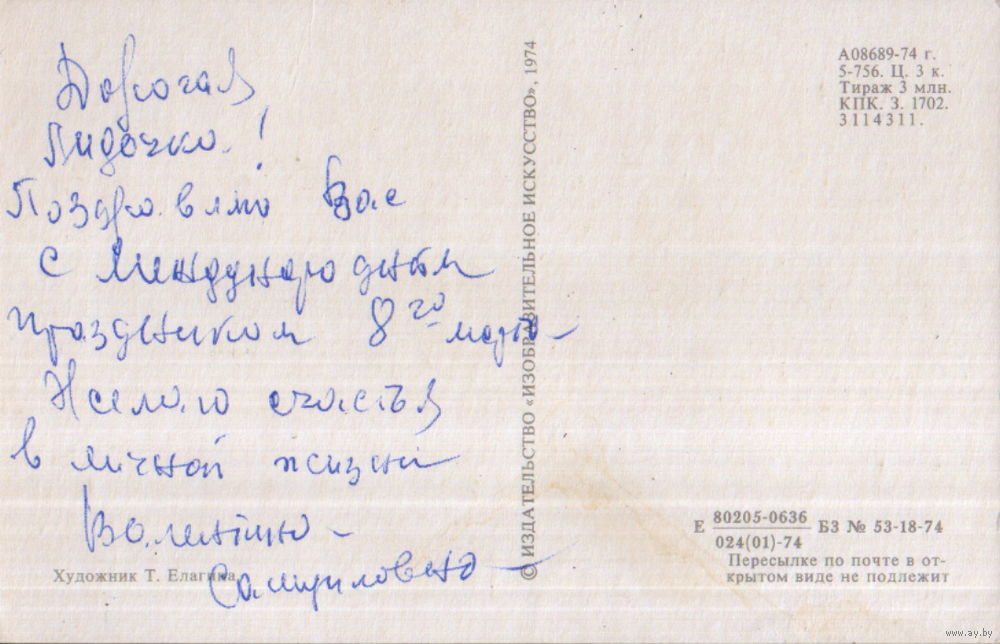 Дорогая
Лидочка!
Поздравляю Вас
с Международным
праздником 8го марта
Желаю счастья
в личной жизни
Валентина
Самуиловна
Художник Т. Елагина
© ИЗДАТЕЛЬСТВО «ИЗОБРАЗИТЕЛЬНОЕ ИСКУССТВО», 1974
А08689-74 г.
5-756. Ц. 3 к.
Тираж 3 млн.
КПК. З. 1702.
3114311.
Е 80205-0636 БЗ № 53-18-74
024(01)-74
Пересылке по почте в от-
крытом виде не подлежит
www.ay.by